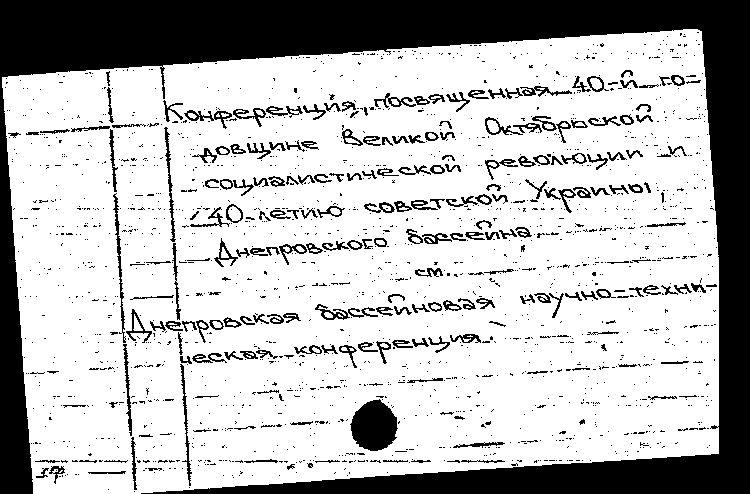 Конференция, посвященная 40-й го-
довщине Великой Октябрьской
социалистической революции и
40-летию советской Украины,
Днепровского бассейна
см.
Днепровская бассейновая научно-техни-
ческая конференция.